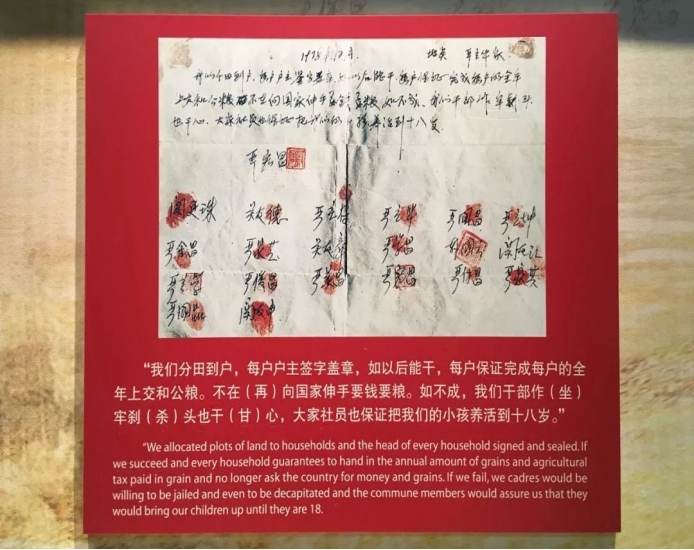 1978年12月 地点 严立华家
我们分田到户,每户户主签字盖章,如以后能干,每户保证完成每户的全年
上交和公粮。不在向国家伸手要钱要粮。如不成,我们干部作牢刹头
也干心。大家社员也保证把我们的小孩养活到十八岁。
严宏昌
关友德 严立华 严国昌 严立坤
严金昌 严学昌
严立学 严俊昌
严国品 关友申
“我们分田到户,每户户主签字盖章,如以后能干,每户保证完成每户的全
年上交和公粮。不在(再)向国家伸手要钱要粮。如不成,我们干部作(坐)
牢刹(杀)头也干(甘)心,大家社员也保证把我们的小孩养活到十八岁。”
"We allocated plots of land to households and the head of every household signed and sealed. If
we succeed and every household guarantees to hand in the annual amount of grains and agricultural
tax paid in grain and no longer ask the country for money and grains. If we fail, we cadres would be
willing to be jailed and even to be decapitated and the commune members would assure us that they
would bring our children up until they are 18.